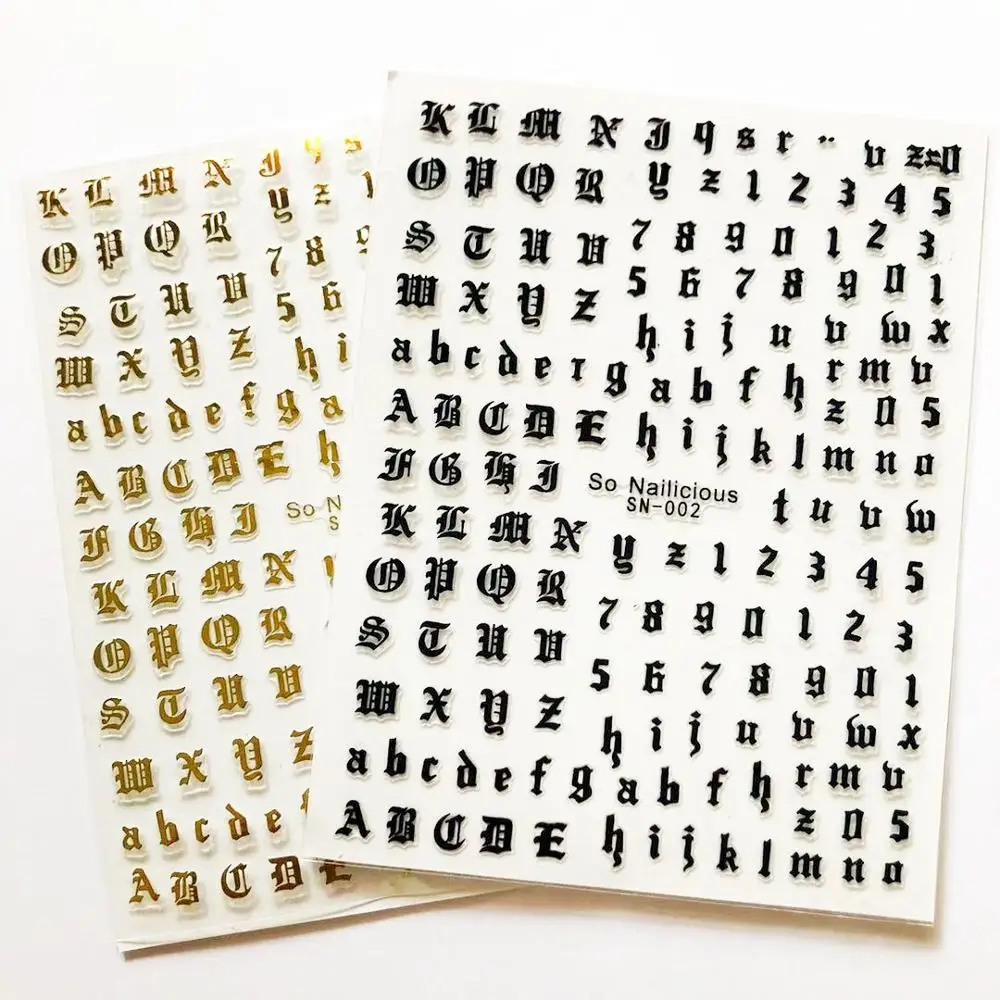 K L M N J q s
O P Q R y z 1
S T U V 7 8 9
W X Y Z 5 6
a b c d e f g a
A B C D E h
F G H I
So N
S
K L M N
O P Q R
S T U V
W X Y Z
a b c d e
A B C D E
K L M N J q s r v z 0
O P Q R y z 1 2 3 4 5
S T U V 7 8 9 0 1 2 3
W X Y Z 5 6 7 8 9 0 1
h i j u v w x
a b c d e r g a b f h r m v
z 0 5
A B C D E h i j k l m n o
F G H I
So Nailicious
SN-002
t u v w
K L M N y z 1 2 3 4 5
O P Q R 7 8 9 0 1 2 3
S T U V 5 6 7 8 9 0 1
W X Y Z h i j u v w x
a b c d e f g a b f h r m v
z 0 5
A B C D E h i j k l m n o